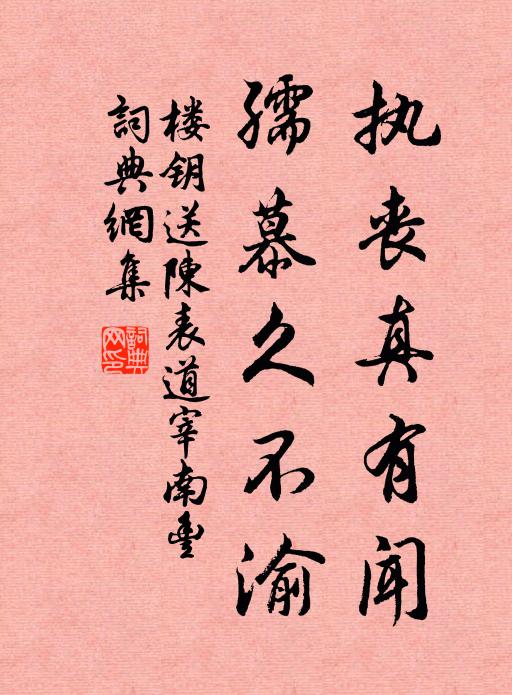 执丧真有闻
孺慕久不渝
楼钥送陳表道宰南豐
詞典網集
詞典
网印